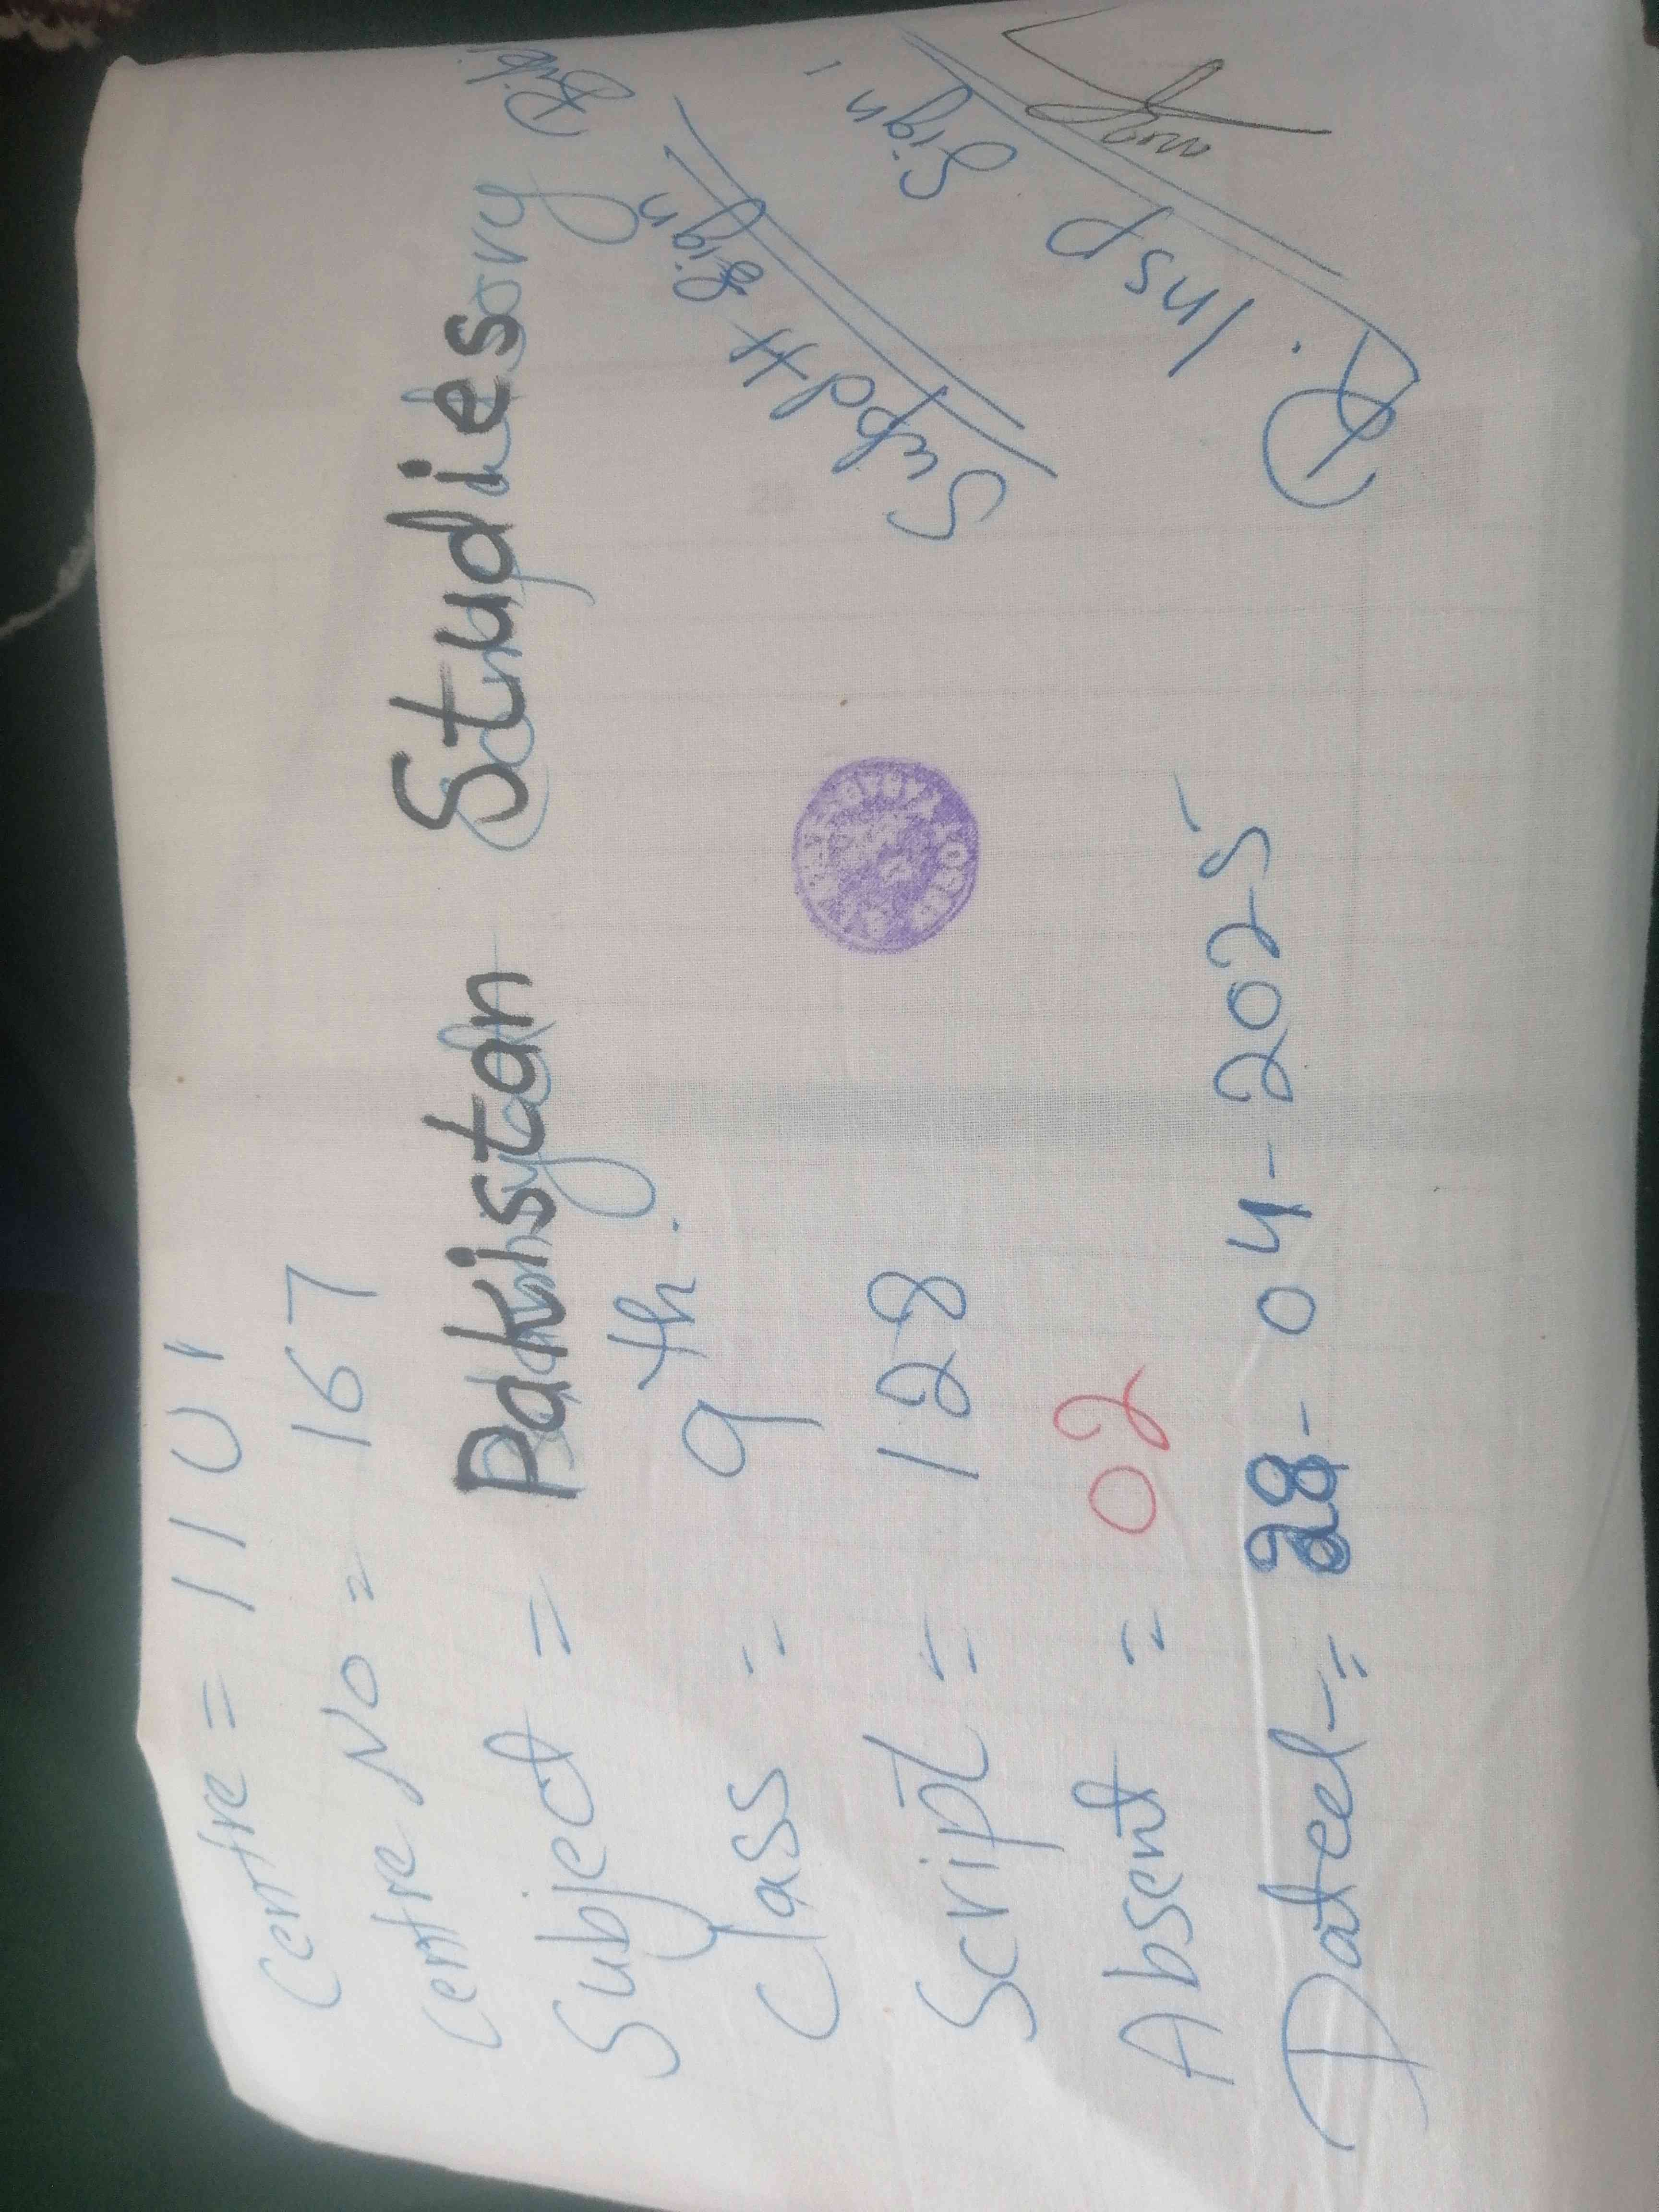 Centre = 1101
Centre No = 167
Subject = Pakistan Studies
Class = 9th.
Script = 128
Absent = 02
Dated = 28-04-2025
Supdtt Sign
R. Insp Sign